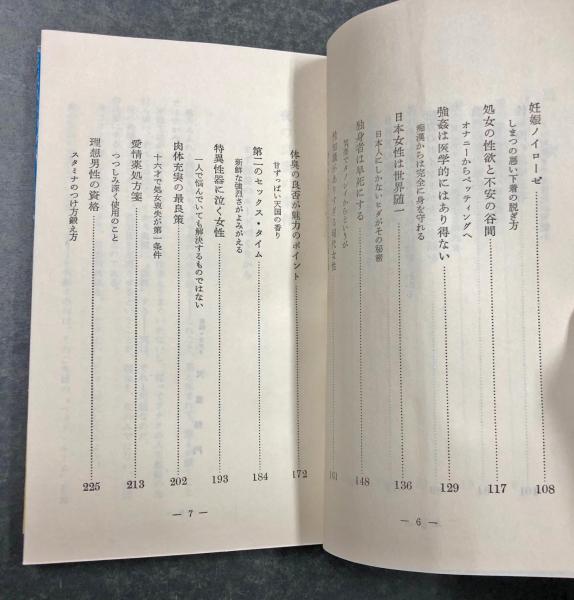 妊娠ノイローゼ 108
しまつの悪い下着の脱ぎ方
処女の性欲と不安の谷間 117
オナニーからペッティングへ
強姦は医学的にはあり得ない 129
痴漢からは完全に身を守れる
日本女性は世界随一 136
日本人にしかないヒダがその秘密
独身者は早死にする 148
161
― 6 ―
体臭の良否が魅力のポイント 172
甘ずっぱい天国の香り
第二のセックス・タイム 184
新鮮な強烈さがよみがえる
特異性器に泣く女性 193
一人で悩んでいても解決するものではない
肉体充実の最良策 202
十六才で処女喪失が第一条件
愛情薬処方箋 213
つつしみ深く使用のこと
理想男性の資格 225
スタミナのつけ方鍛え方
― 7 ―